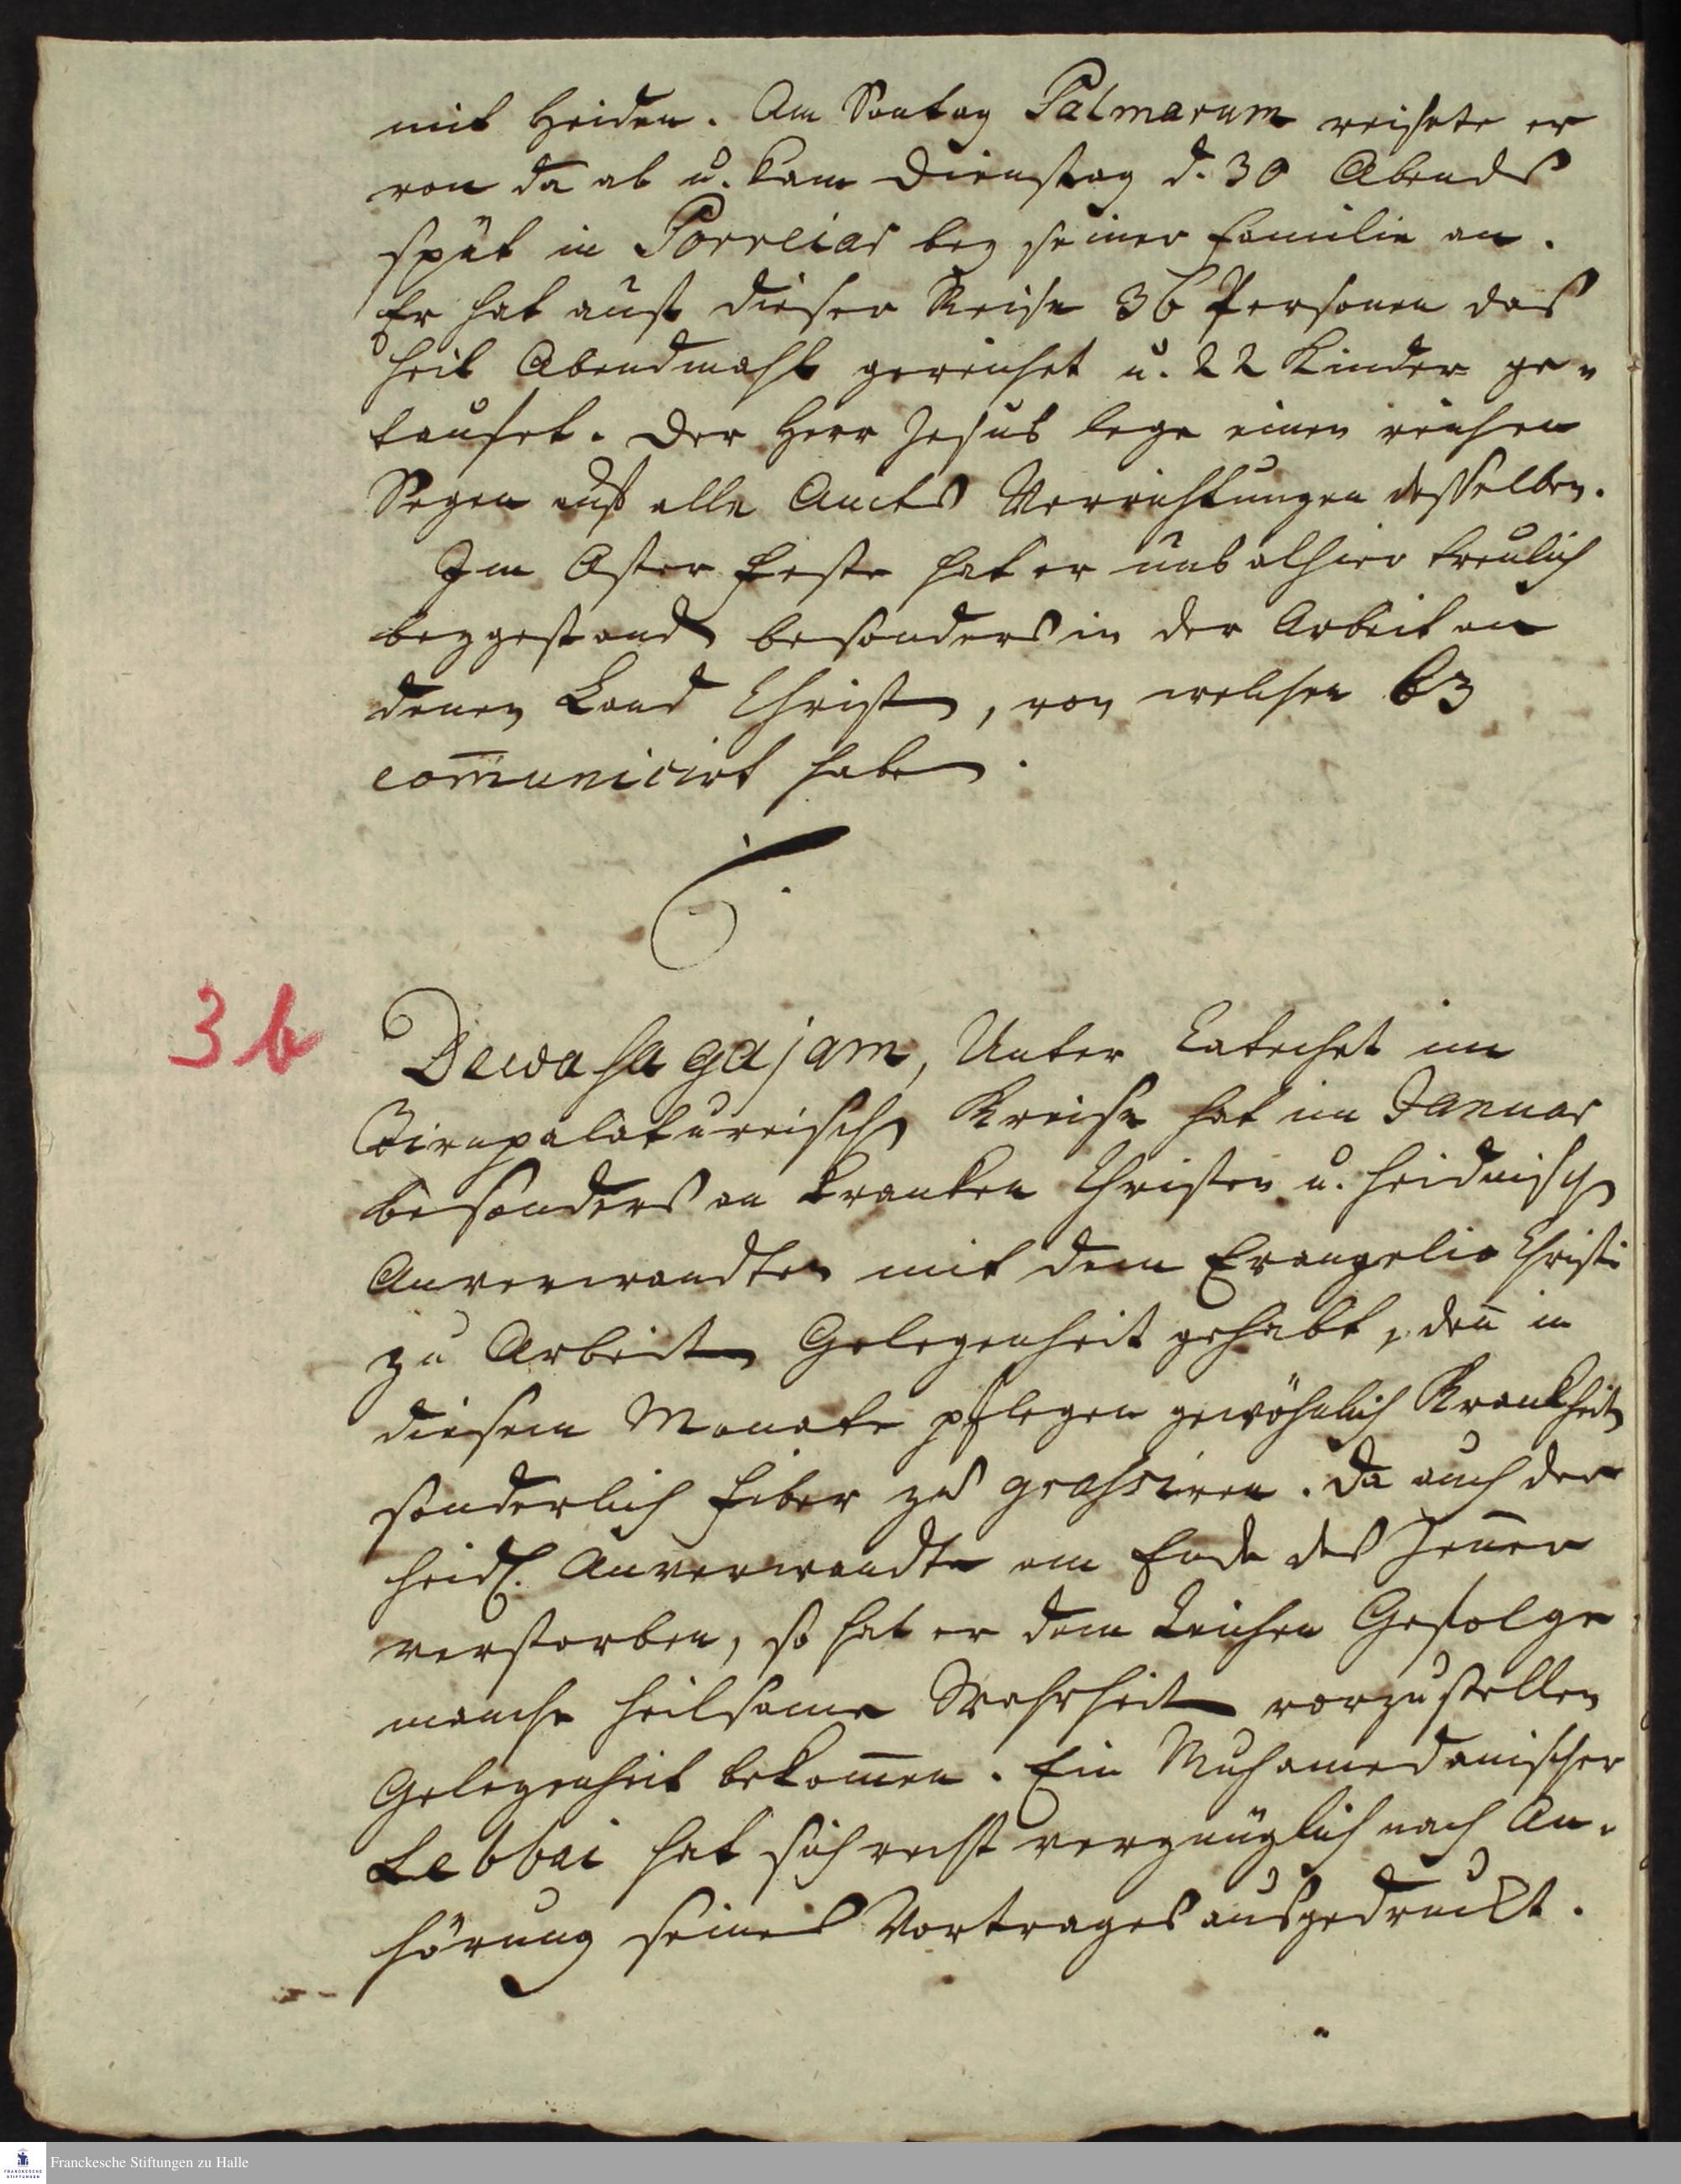 mit Heiden. Am Sontag Palmarum reisete er
von da ab u. kam Dienstag d. 30 Abends
spät in Porreiar bey seiner Familie an.
Er hat auf dieser Reise 36 Personen das
heil Abendmahl gereichet u. 22 Kinder ge-
taufet. Der Herr Jesus lege einen reichen
Segen auf alle Amts Verrichtungen desselben.
Im Oster Feste hat er uns alhier treulich
beygestanden besonders in der Arbeit an
denen Land Christen, von welchen 63
com̄uniciret haben.
3 b
Dewasagajam, Unter Catechet im
Tirupalatureischen Kreise hat im Januar
besonders an kranken Christen u. heidnischen
Anverwandten mit dem Evangelio Christi
zu Arbeiten Gelegenheit gehabt, den̄ in
diesem Monate pflegen gewöhnlich Krankheiten
sonderlich Fiber zu grassiren. Da auch der
heidn. Anverwandte am Ende des Jenner
verstorben, so hat er dem Leichen Gefolge
manche heilsame Wahrheiten vorzustellen
Gelegenheit bekom̄en. Ein Muhamedanischer
Lebbai hat sich recht vergnüglich nach An-
hörung seines Vortrages ausgedruckt.
Franckesche Stiftungen zu Halle